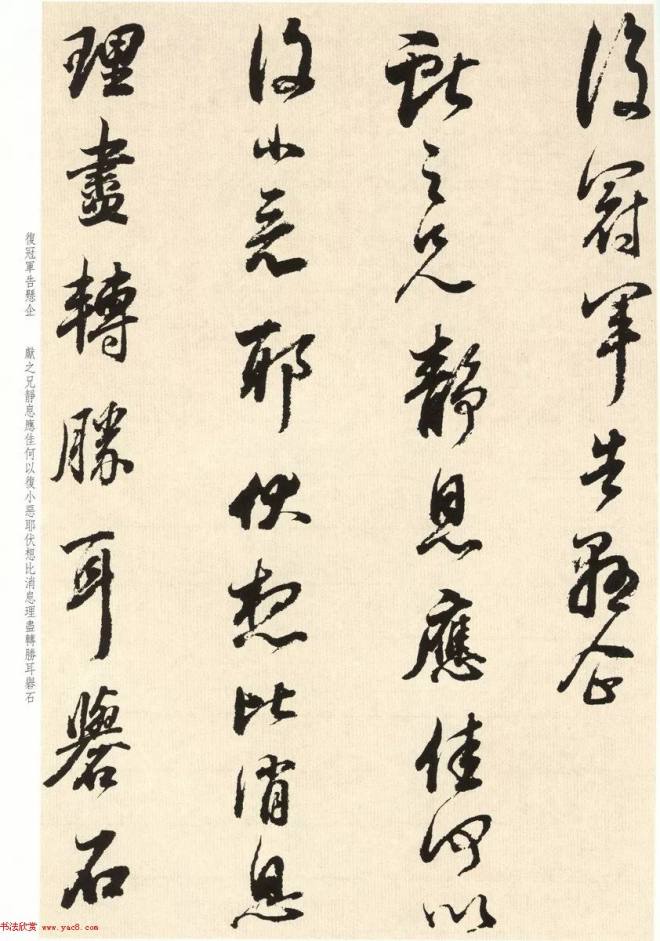 復冠軍告懸企
獻之兄靜息應佳何以
復小惡耶伏想比消息
理盡轉勝耳礜石
復冠軍告懸企 獻之兄靜息應佳何以復小惡耶伏想比消息理盡轉勝耳礜石
书法欣赏 www.yac8.com